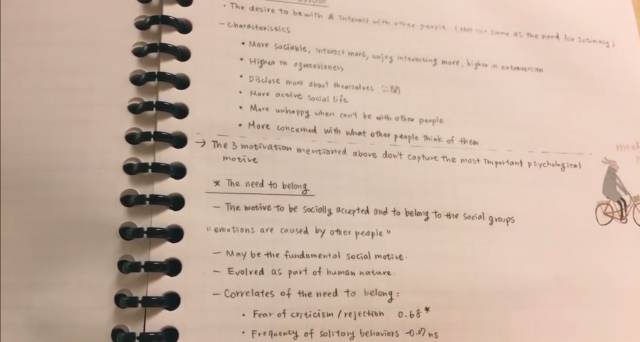 • The desire to be with & interact with other people. (Not the same as the need for intimacy)
- Characteristics
• More sociable, interact more, enjoy interacting more, higher in extraversion
• Higher in agreeableness
• Disclose more about themselves 公開
• More active social life
• More unhappy when can't be with other people
• More concerned with what other people think of them
→ The 3 motivation mentioned above don't capture the most important psychological
motive
* The need to belong
- The motive to be socially accepted and to belong to the social groups
"emotions are caused by other people"
- May be the fundamental social motive.
- Evolved as part of human nature.
- Correlates of the need to belong:
• Fear of criticism / rejection 0.68*
• Frequency of solitary behaviors -0.07 ns